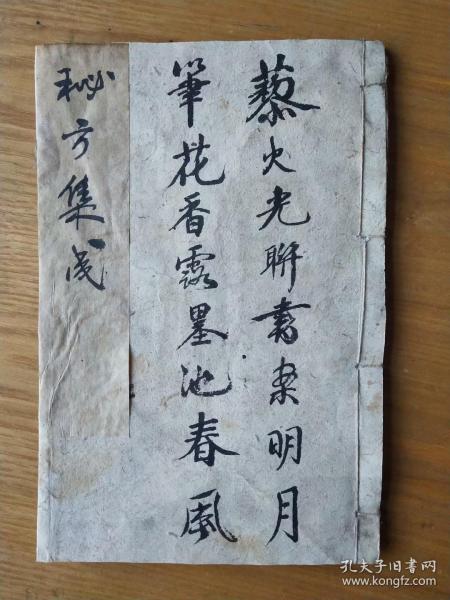 藜火光聯書案明月
筆花香露墨池春風
秘方集成
孔夫子旧书网
www.kongfz.com